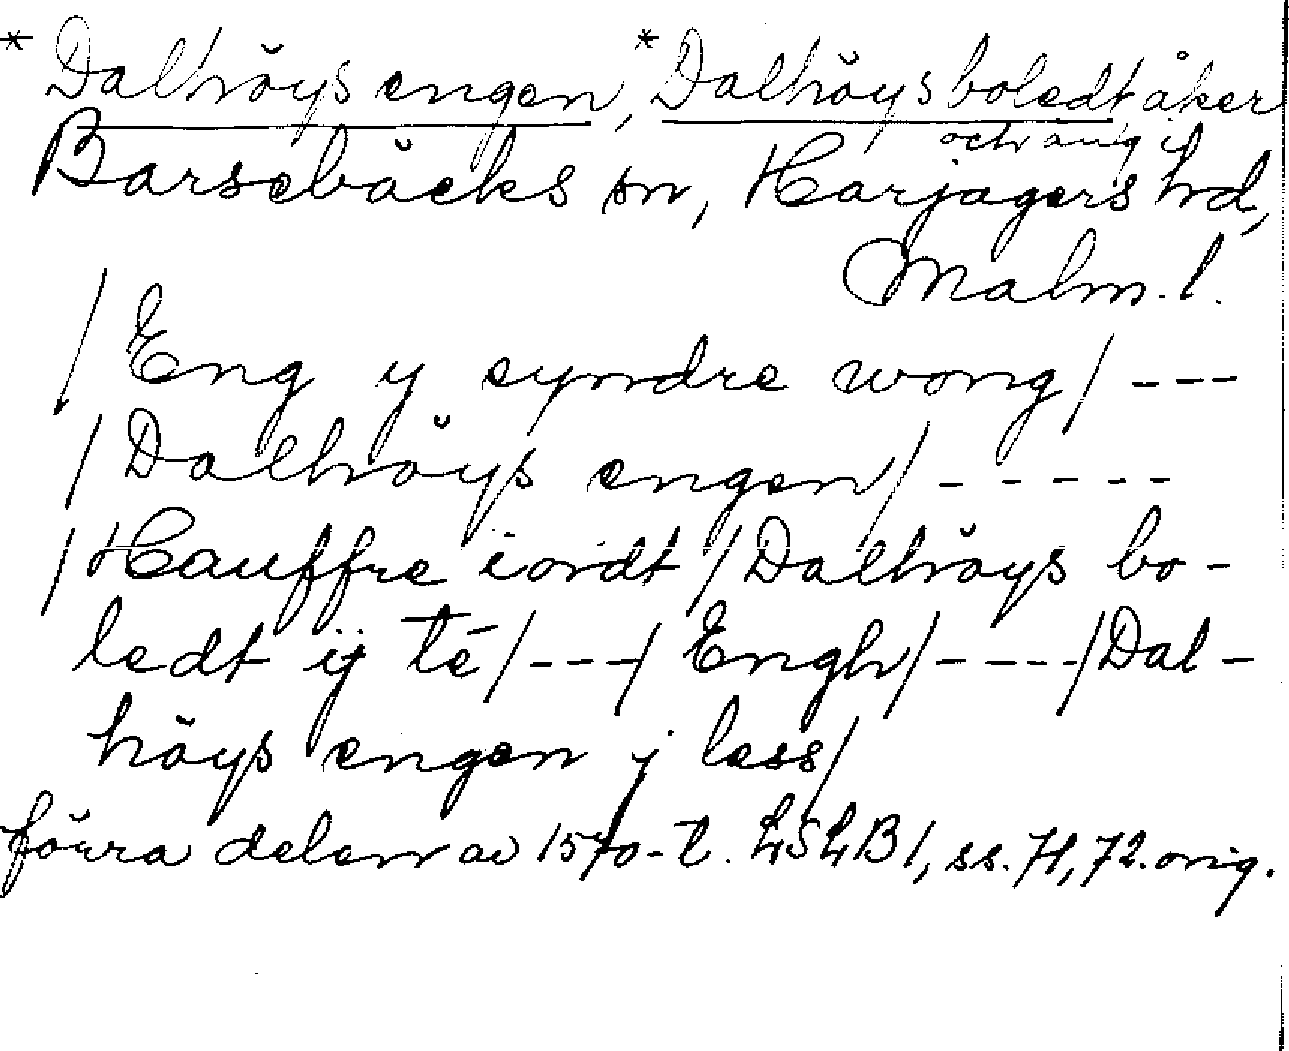 * Dalhöys engen, * Dalhöys boledt, åker
och äng i
Barsebäcks sn, Harjagers hd,
Malm. l.
/ Eng y syndre wong / ---
/ Dalhöys engen / -----
/ Hauffre iordt / Dalhöys bo-
ledt ij té / --- / Engh / ---- / Dal-
höys engen j less /
förra delen av 1570-t. LSLB 1, ss. 71, 72. orig.